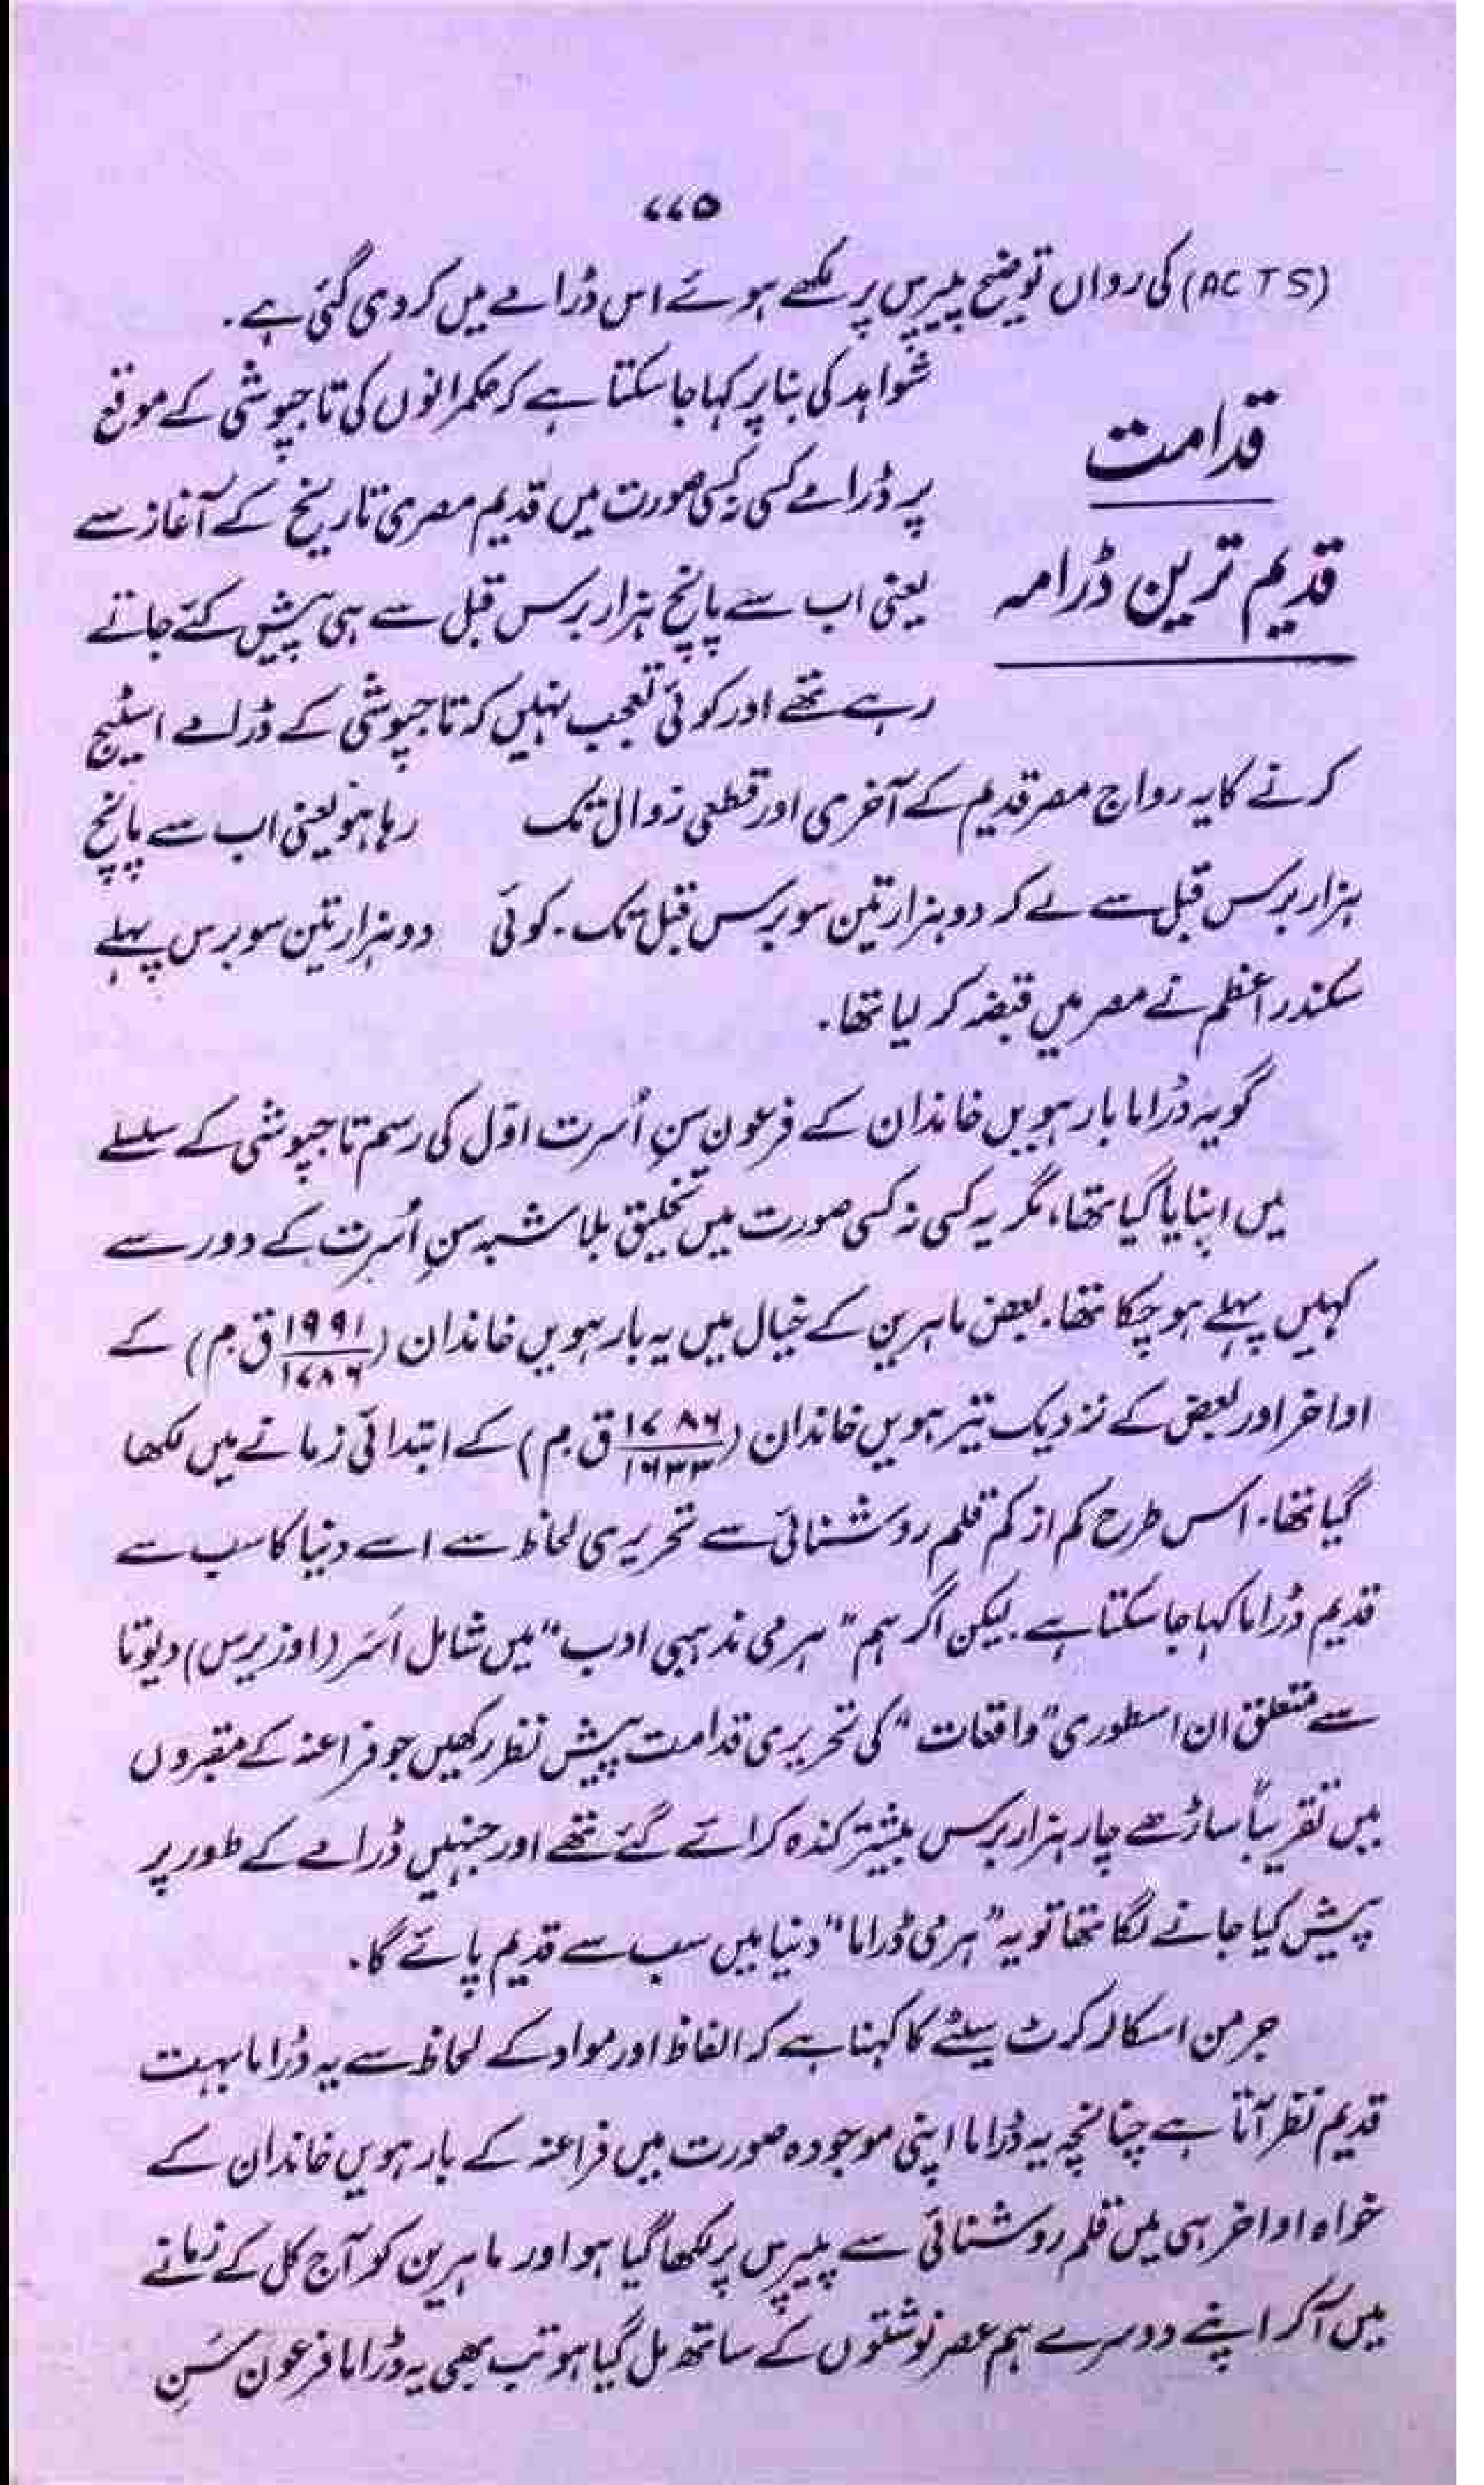 ۷۷۵
(ACTS) کی رواں توضیح پیپرس پر لکھے ہوئے اس ڈرامے میں کر دی گئی ہے۔
قدامت
قدیم ترین ڈرامہ
شواہد کی بنا پر کہا جا سکتا ہے کہ حکمرانوں کی تاجپوشی کے موقع
پر ڈرامے کسی نہ کسی صورت میں قدیم مصری تاریخ کے آغاز سے
یعنی اب سے پانچ ہزار برس قبل سے ہی پیش کئے جاتے
رہے تھے اور کوئی تعجب نہیں کہ تاجپوشی کے ڈرامے اسٹیج
کرنے کا یہ رواج مصر قدیم کے آخری اور قطعی زوال تک رہا ہو یعنی اب سے پانچ
ہزار برس قبل سے لے کر دو ہزار تین سو برس قبل تک۔ کوئی دو ہزار تین سو برس پہلے
سکندر اعظم نے مصر میں قبضہ کر لیا تھا۔
گو یہ ڈراما بارہویں خاندان کے فرعون سنِ اُسرت اوّل کی رسم تاجپوشی کے سلسلے
میں اپنایا گیا تھا، مگر یہ کسی نہ کسی صورت میں تخلیق بلاشبہ سنِ اُسرت کے دور سے
کہیں پہلے ہو چکا تھا۔ بعض ماہرین کے خیال میں یہ بارہویں خاندان (۱۹۹۱/۱۷۸۶ ق۔م) کے
اواخر اور بعض کے نزدیک تیرہویں خاندان (۱۷۸۶/۱۶۳۳ ق۔م) کے ابتدائی زمانے میں لکھا
گیا تھا۔ اس طرح کم از کم قلم روشنائی سے تحریری لحاظ سے اسے دنیا کا سب سے
قدیم ڈراما کہا جا سکتا ہے۔ لیکن اگر ہم "ہرمی مذہبی ادب" میں شامل اَسَر (اوزیرس) دیوتا
سے متعلق ان اسطوری "واقعات" کی تحریری قدامت پیش نظر رکھیں جو فراعنہ کے مقبروں
میں تقریباً ساڑھے چار ہزار برس پیشتر کندہ کرائے گئے تھے اور جنہیں ڈرامے کے طور پر
پیش کیا جانے لگا تھا تو یہ "ہرمی ڈراما" دنیا میں سب سے قدیم پائے گا۔
جرمن اسکالر کرٹ سیٹے کا کہنا ہے کہ الفاظ اور مواد کے لحاظ سے یہ ڈراما بہت
قدیم نظر آتا ہے چنانچہ یہ ڈراما اپنی موجودہ صورت میں فراعنہ کے بارہویں خاندان کے
خواہ اواخر ہی میں قلم روشنائی سے پیپرس پر لکھا گیا ہو اور ماہرین کو آج کل کے زمانے
میں آ کر اپنے دوسرے ہم عصر نوشتوں کے ساتھ مل گیا ہو تب بھی یہ ڈراما فرعون سَنِ